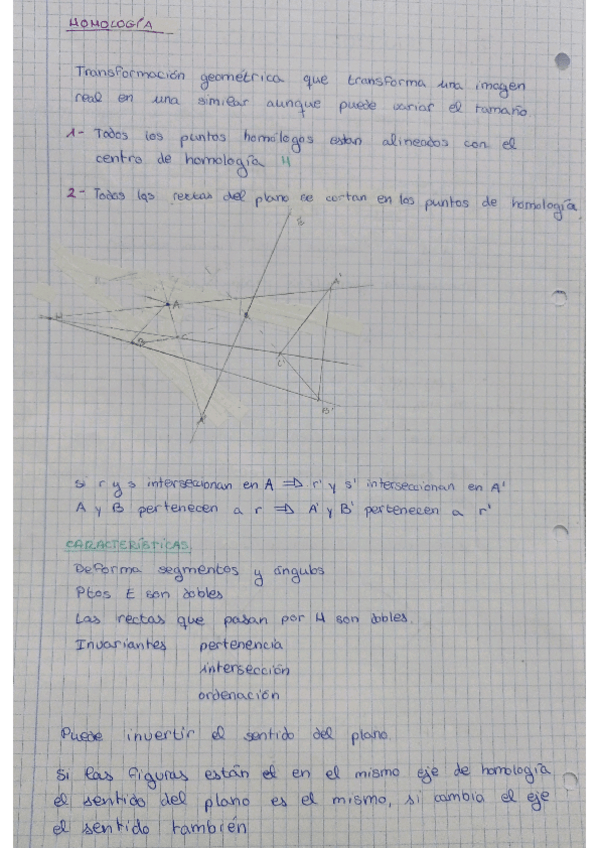 HOMOLOGÍA
Transformación geométrica que transforma una imagen
real en una similar aunque puede variar el tamaño
1- Todos los puntos homólogos estan alineados con el
centro de homología H
2- Todas las rectas del plano se cortan en los puntos de homología.
E
A'
A
H
B
C
C'
B'
si r y s interseccionan en A => r' y s' interseccionan en A'
A y B pertenecen a r => A' y B' pertenecen a r'
CARACTERÍSTICAS
Deforma segmentos y ángulos
Ptos E son dobles
Las rectas que pasan por H son dobles.
Invariantes pertenencia
intersección
ordenación
Puede invertir el sentido del plano
Si las figuras están el en el mismo eje de homología
el sentido del plano es el mismo, si cambia el eje
el sentido también